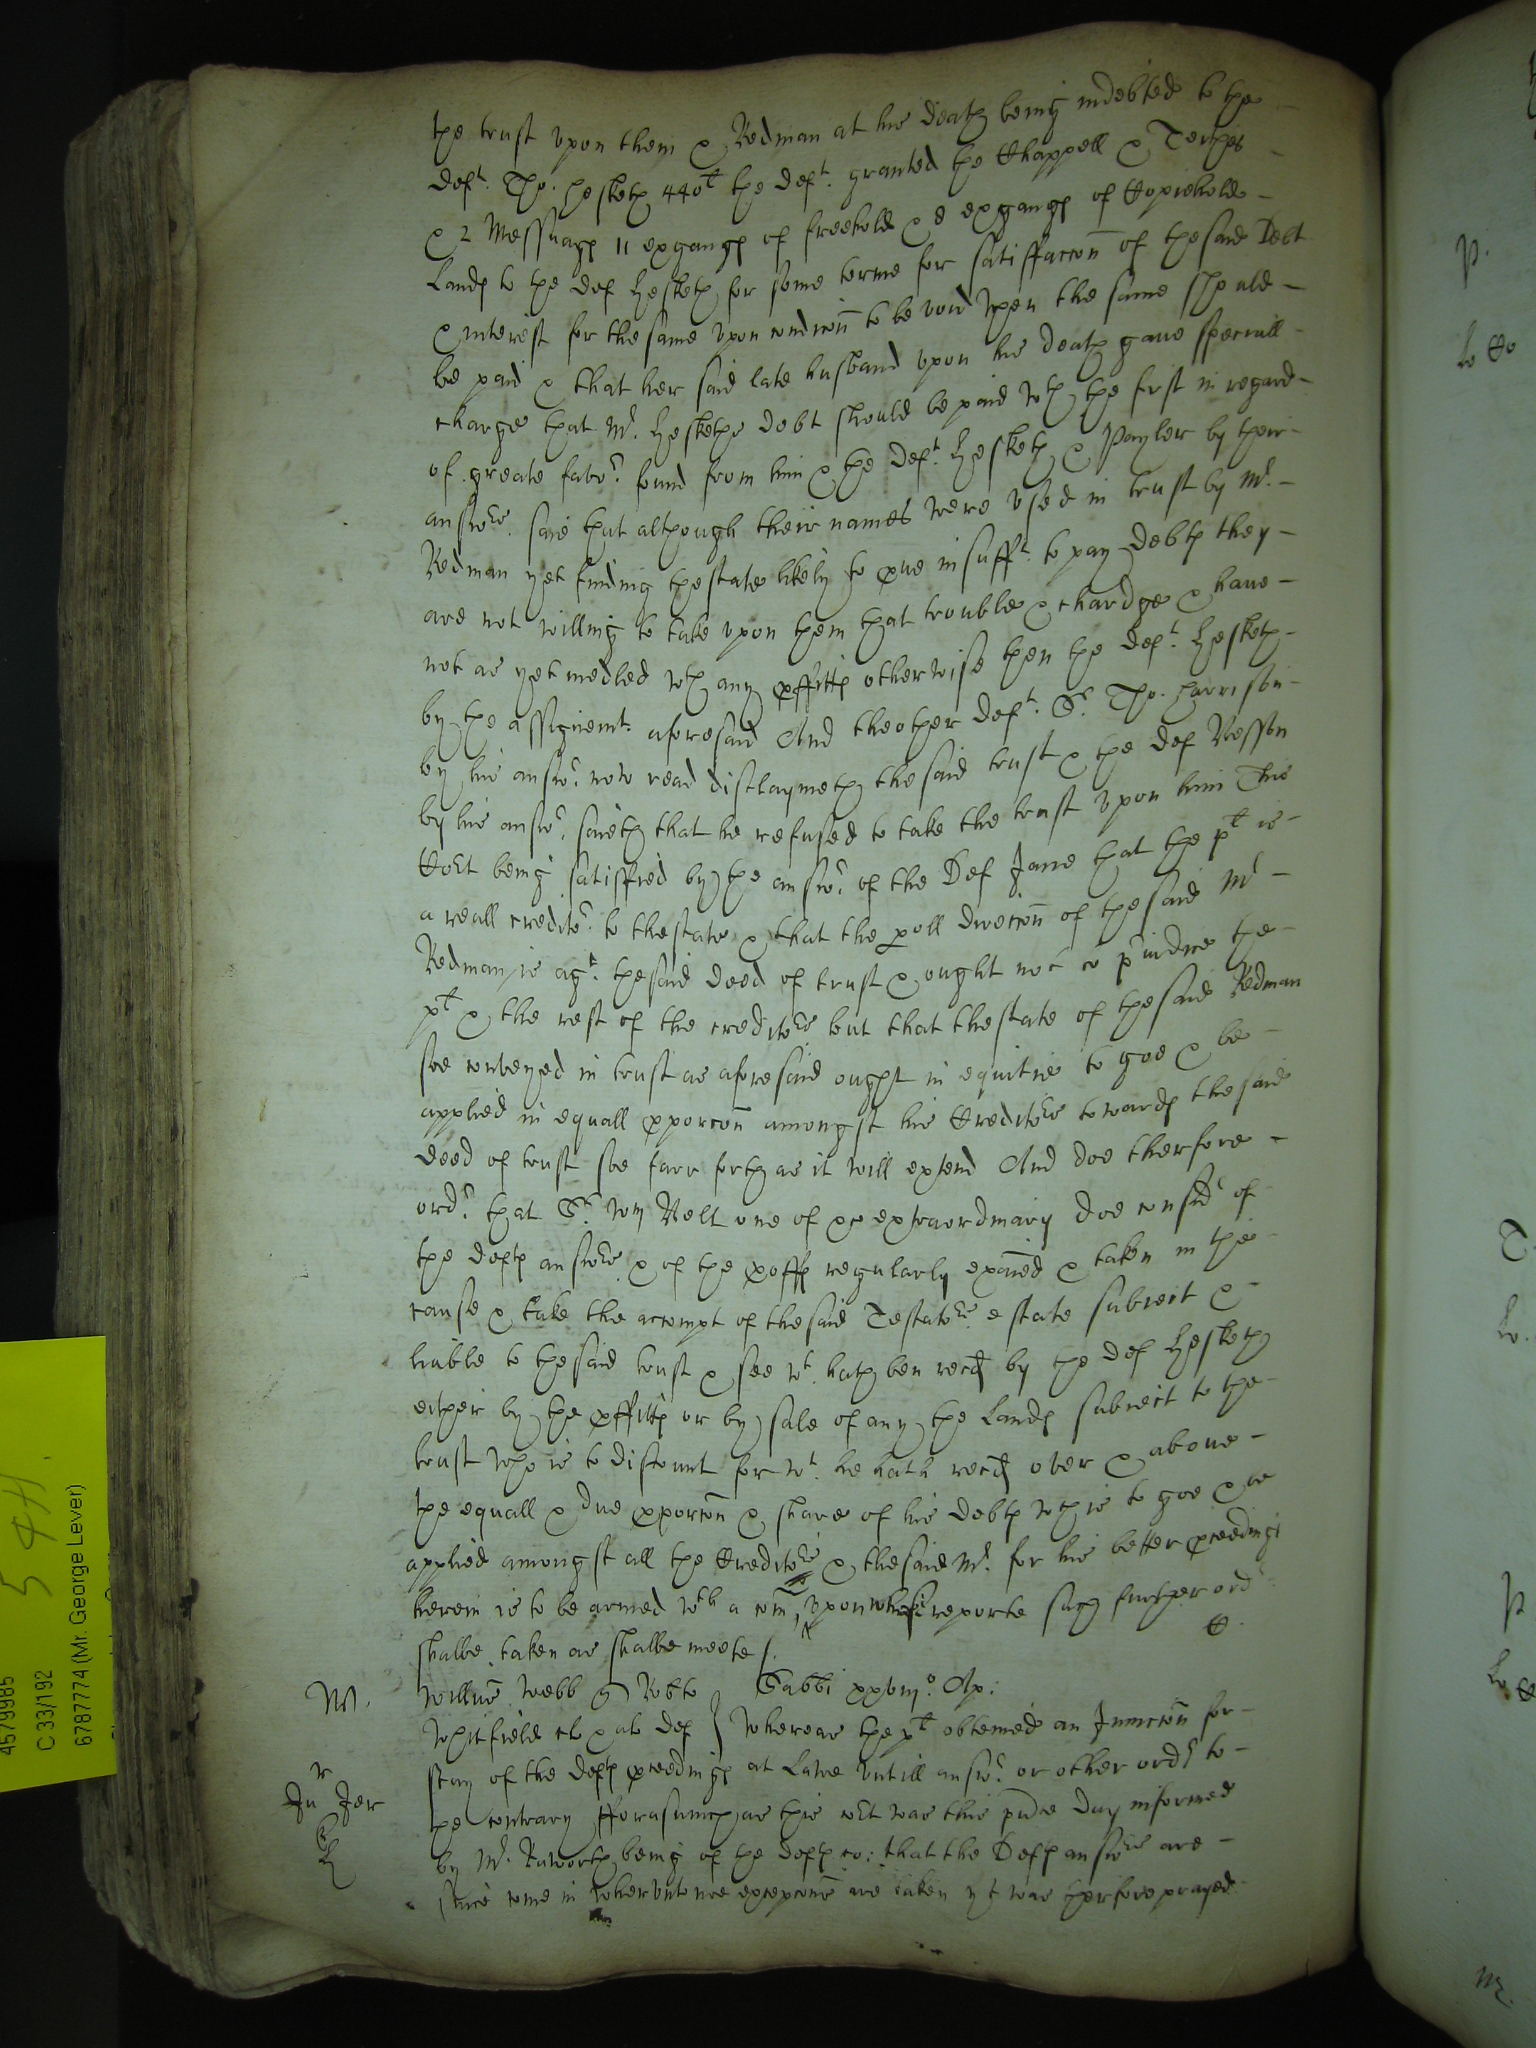 the trust vpon them & Redman at his death being indebted to the
deft. Tho. Hesketh 440l the deft. granted the Chappell & Teithes
& 2 Messuags 11 oxgangs of freehold & 8 oxgangs of Copiehold
Lands to the def Hesketh for some terme for satisfaccon of the said Debt
& interest for the same vpon condicon to be void when the same should
be paid & that her said late husband vpon his death gaue speciall
charge that Mr. Heskeths debt should be paid wth the first in regard
of greate favor. found from him & the deft. Hesketh & Payler by their
answers. said that although their names were vsed in trust by Mr.
Redman yet finding thestate likely to proue insufft. to pay debts they
are not willing to take vpon them that trouble & chardge & haue
not as yet medled wth any proffitts otherwise then the deft. Hesketh
by the assignemt. aforesaid And theother deft. Sr. Tho. Harrison
by his answr. now read disclaymeth the said trust & the def Nesson
by his answr. saieth that he refused to take the trust vpon him This
Cort being satisfied by the answr. of the Def Jane that the plt is
a reall creditor. to thestate & that the direccon of the said Mr
Redman is agt. the said deed of trust & ought not to preiudice the
plt & the rest of the creditors but that thestate of the said Redman
soe conveyed in trust as aforesaid ought in equitie to goe & be
applied in equall proporcon amongst his Creditors towards the said
deed of trust soe farr forth as it will extend And doe therfore
ordr. that Sr. Wm Belt one of ye extraordinary doe considr of
the defts answers & of the proffs regularly examed & taken in the
cause & take the accompt of the said Testators estate subiect &
liable to the said trust & see wt. hath ben recd by the def Hesketh
either by the proffitts or by sale of any the Lands subiect to the
trust who is to discount for wt. he hath recd over & aboue
the equall & due proporcon & share of his debts wch is to goe & be
applied amongst all the Creditors & the said Mr. for his better proceedings
herein is to be armed wth a com, vpon whose reporte such further ordr
shalbe taken as shalbe meete /.
C.
W.
Willms Webb Robto Sabbi xxviijo. Ap:
Whitfield cl & als def Whereas the plt obteined an Iniuncon for
stay of the defts proceedings at Lawe vntill answr. or other ordr to
In Jer
the contrary fforasmuch as this cort was this pnte day informed
by Mr. Raworth being of the defts co: that the Defts answers are
since come in whervnto noe excepcons are taken yt was therfore prayed
4579985
C 33/192
6787774 (Mr. George Lever)